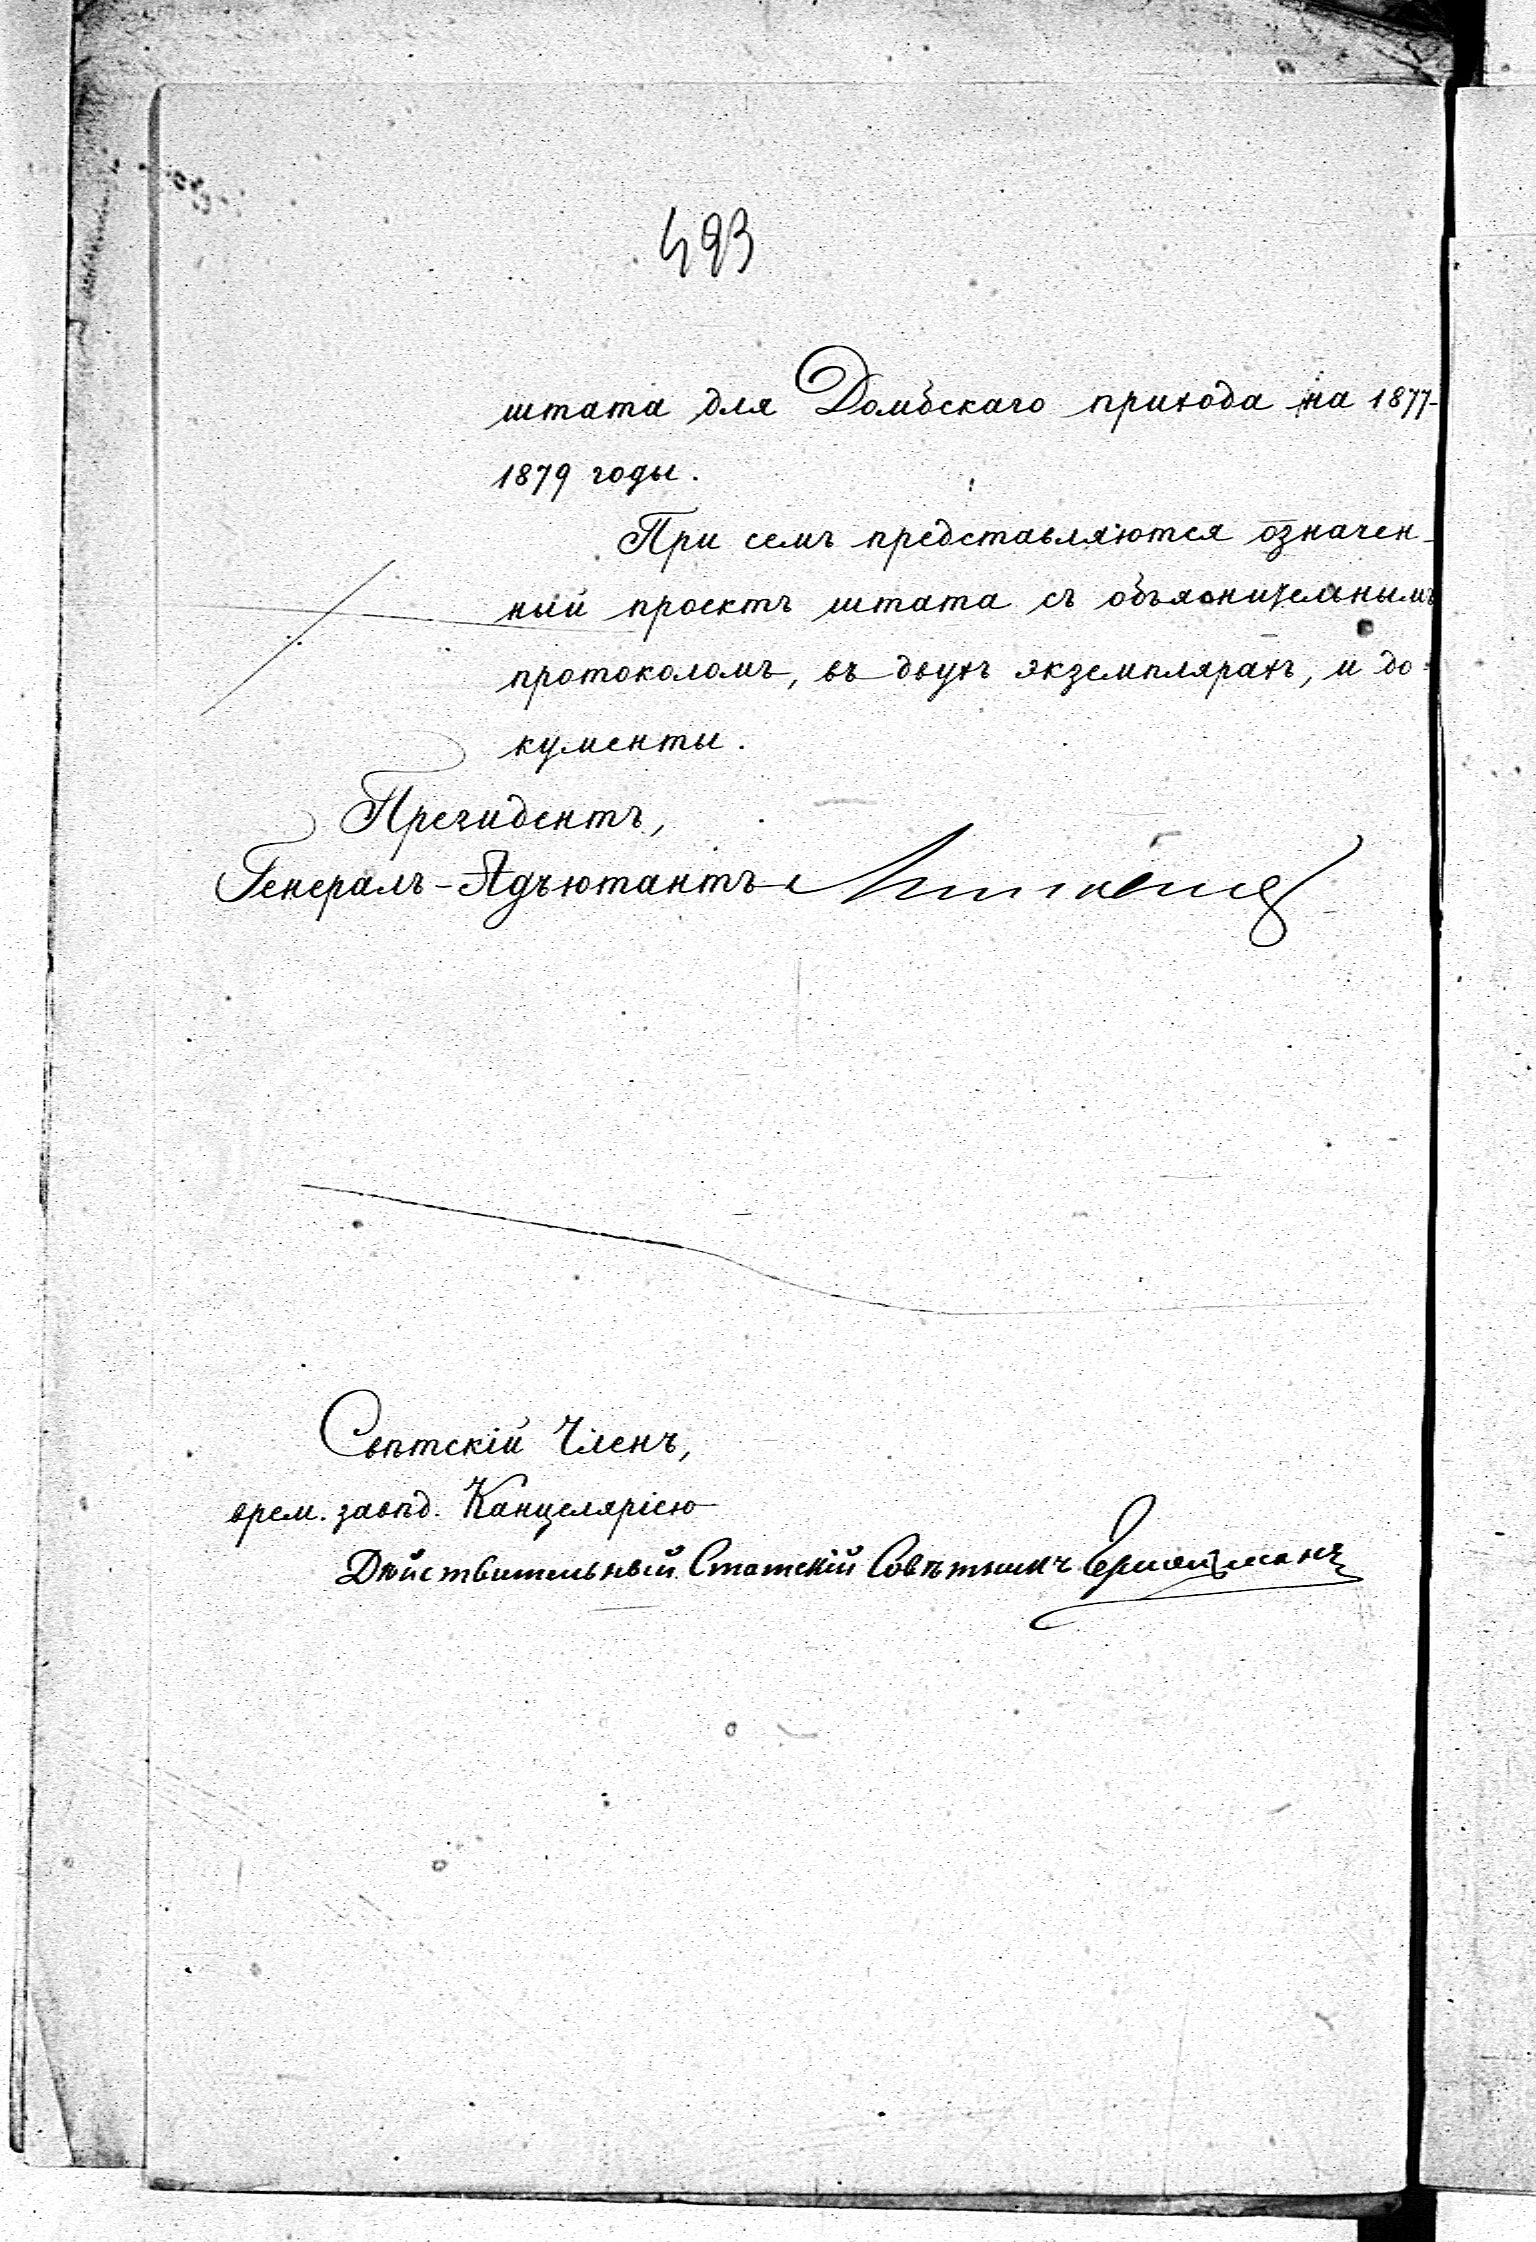 493
штата для Домбскаго прихода на 1877-
1879 годы.
При семъ представляются означен-
ный проектъ штата съ объяснительнымъ
протоколомъ, въ двухъ экземплярахъ, и до-
кументы.
Президентъ,
Генералъ-Адъютантъ
Свѣтскій Членъ,
врем. завѣд. Канцеляріею
Дѣйствительный Статскій Совѣтникъ